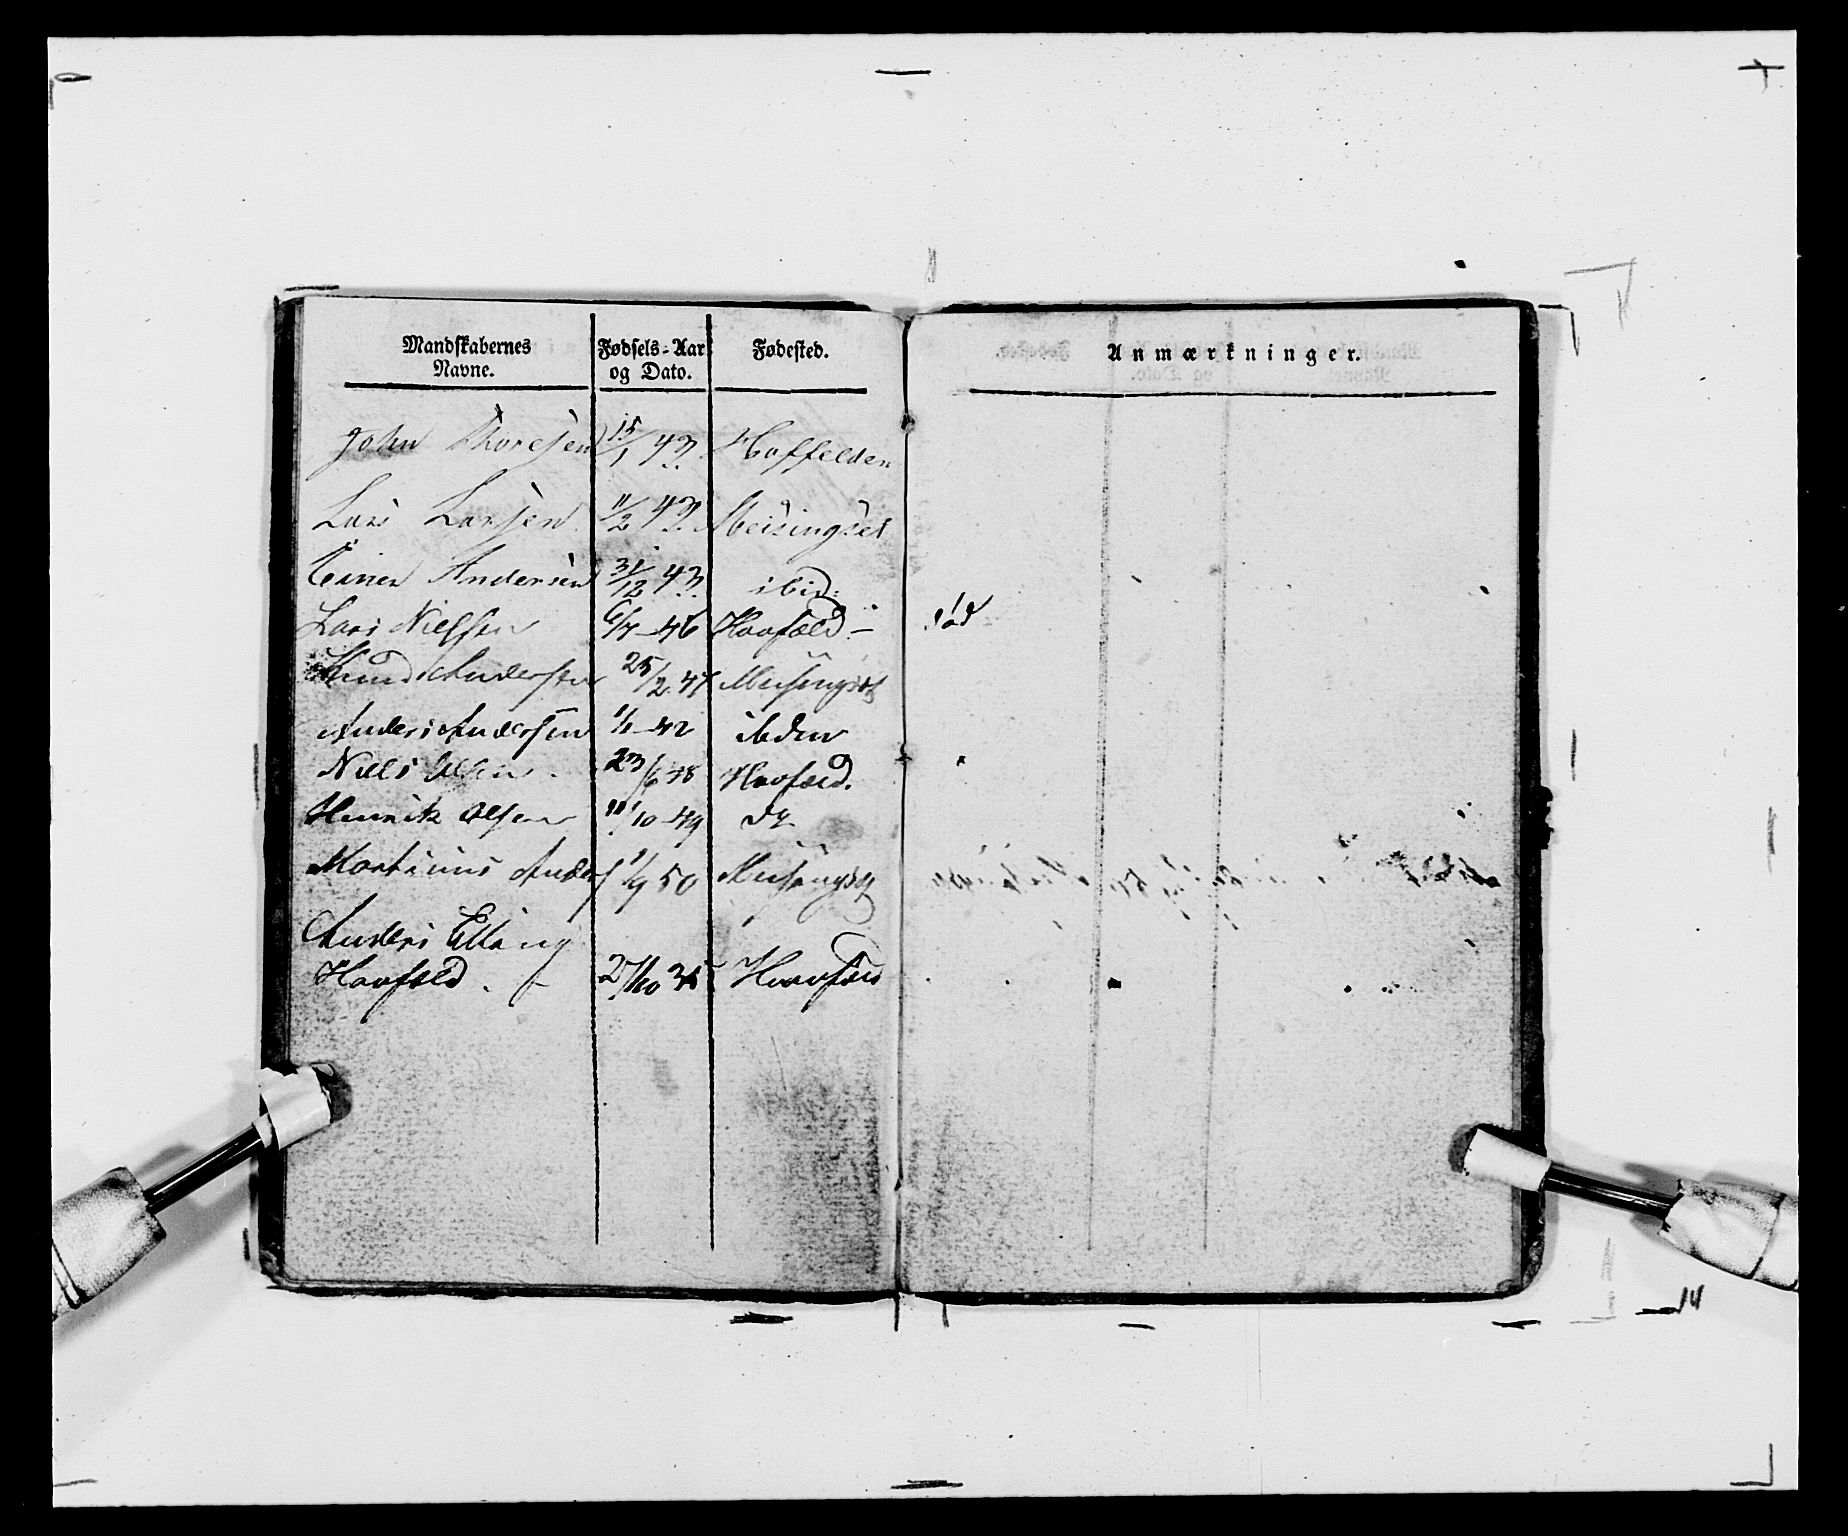 Mandskabernes Navne. Fødsels-Aar og Dato. Fødested. Anmærkninger.
John Thoresen 15/1 43. Hoffelden
Lars Larsen 11/2 43. Meisingset
Einer Andersen 31/12 43. ibid:
Lars Nielsen 6/7-46 Havfæld.- død
Knud Andersen 25/2 47 Meisingset
Anders Andersen 1/1-42 ibden
Niels Olsen. 23/6-48 Havfæld.
Henrik Olsen 11/10-49 do
Martinus Anders 1/9 50 Meisingset
Anders Elling
Havfæld. 27/10 35 Havfæld
14